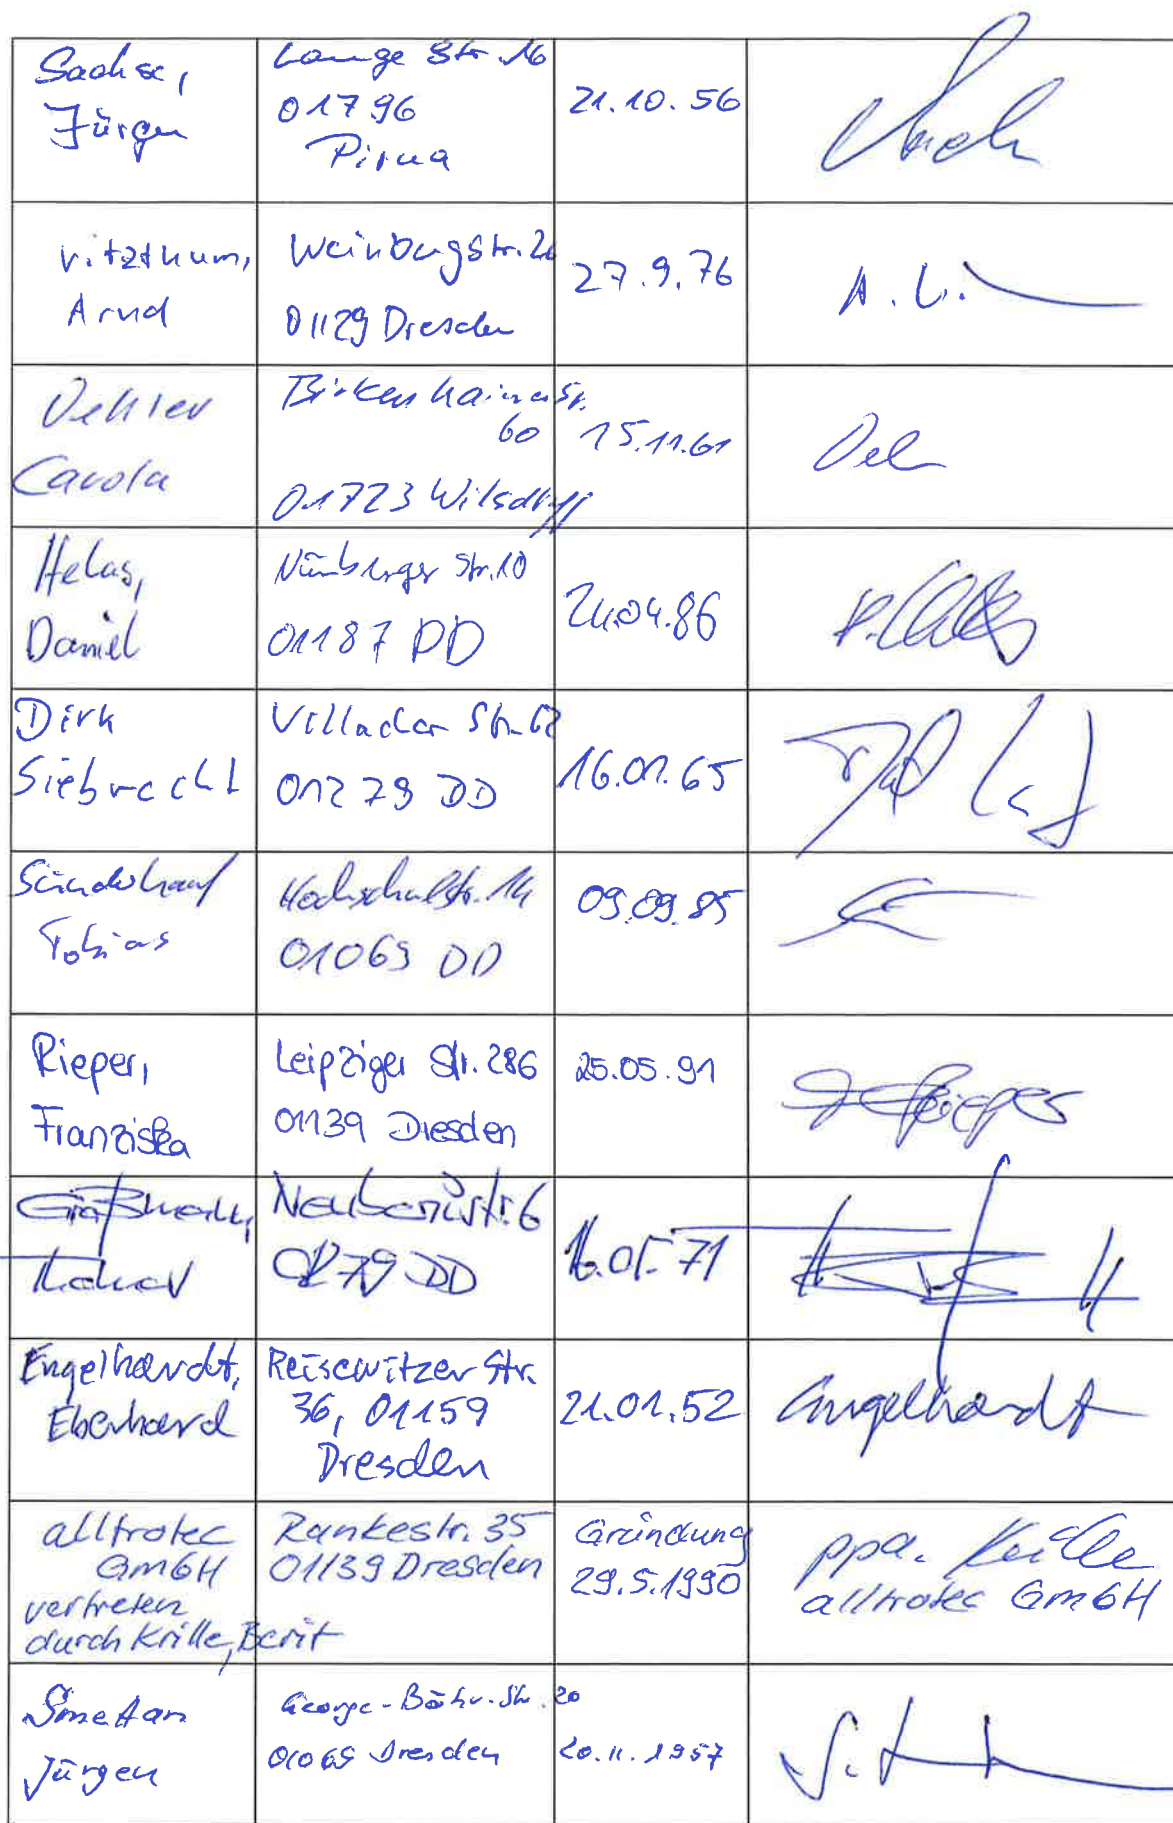 Sachse,
Jürgen
Lange Str. 16
01796
Pirna
21.10.56
Vitzthum,
Arnd
Weinbergstr.
01129 Dresden
27.9.76
A. V.
Oehler
Carola
Birkenhainer Str.
60
01723 Wilsdruff
15.11.61
Oel
Helas,
Daniel
Nürnberger Str. 10
01187 DD
04.86
Dirk
Siebrecht
Villacher Str. 62
01279 DD
16.01.65
Sünderhauf
Tobias
Hochschulstr. 14
01069 DD
09.09.85
Rieper,
Franziska
Leipziger Str. 286
01139 Dresden
25.05.91
Rieper
Neuberinstr. 6
79 DD
71
Engelhardt,
Eberhard
Reisewitzer Str.
36, 01159
Dresden
21.01.52
Engelhardt
alltrotec
GmbH
vertreten
durch Krille, Berit
Rankestr. 35
01139 Dresden
Gründung
29.5.1990
ppa. Krille
alltrotec GmbH
Smetan
Jürgen
George-Bähr-Str. 20
01069 Dresden
20.11.1957